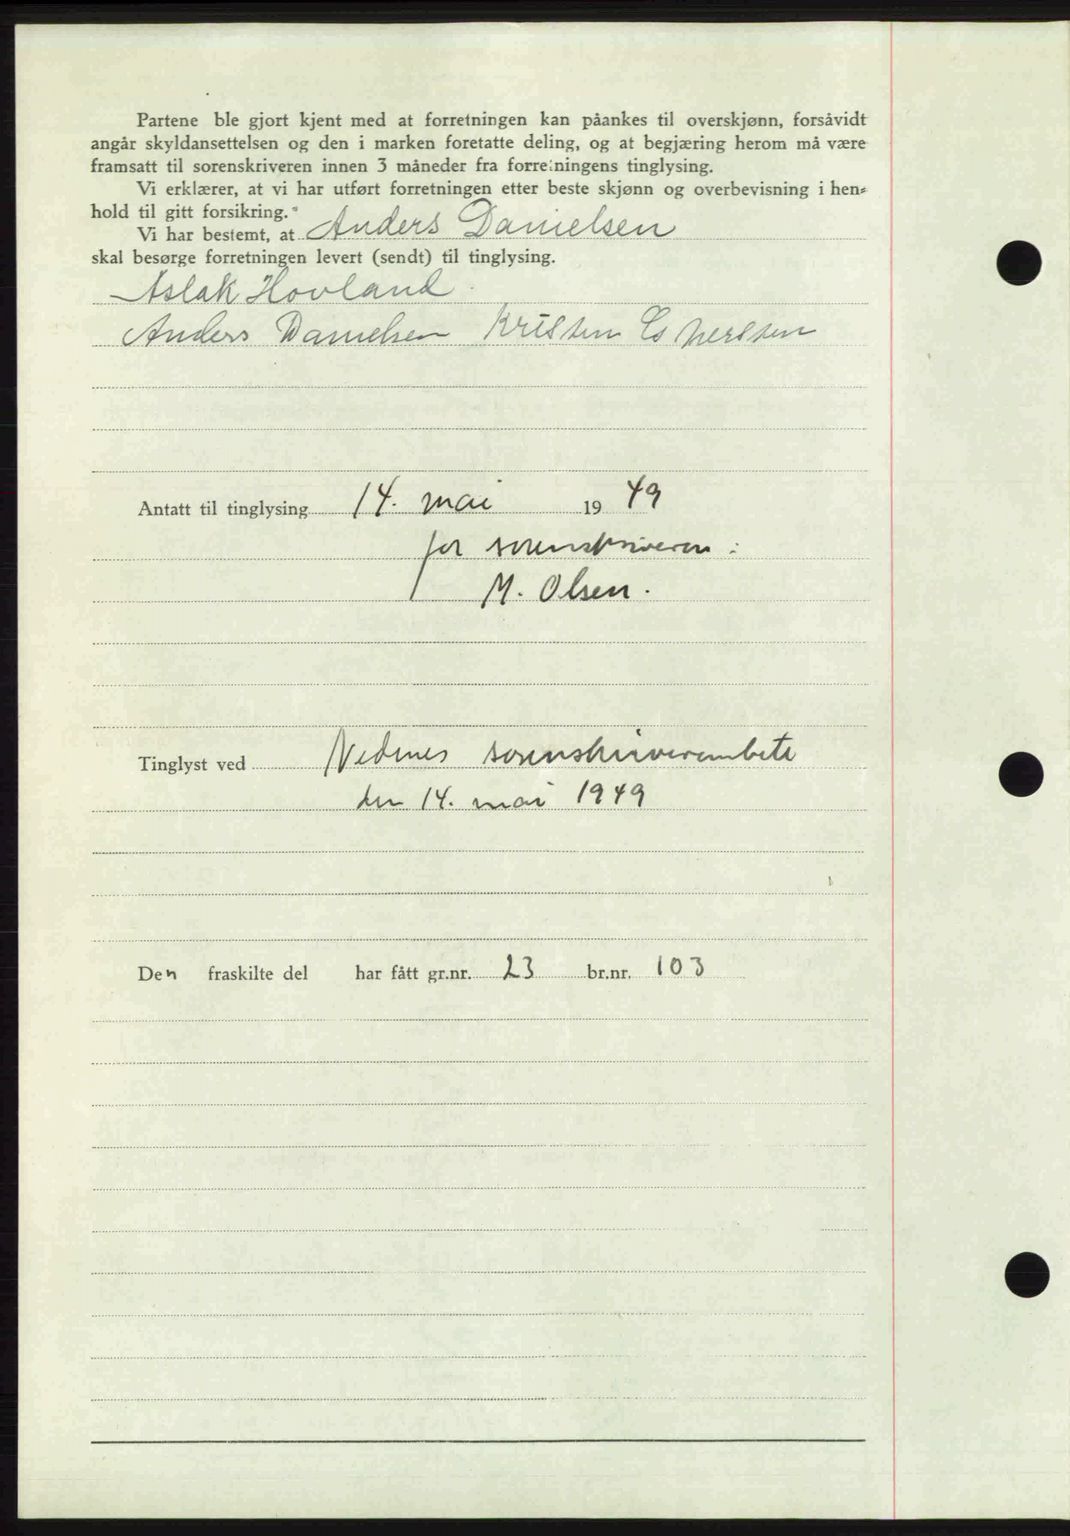 Partene ble gjort kjent med at forretningen kan påankes til overskjønn, forsåvidt
angår skyldansettelsen og den i marken foretatte deling, og at begjæring herom må være
framsatt til sorenskriveren innen 3 måneder fra forretningens tinglysing.
Vi erklærer, at vi har utført forretningen etter beste skjønn og overbevisning i hen-
hold til gitt forsikring.
Vi har bestemt, at Anders Danielsen
skal besørge forretningen levert (sendt) til tinglysing.
Aslak Hovland
Anders Danielsen Kristen
Antatt til tinglysing 14. mai 19 49
for sorenskriveren:
M. Olsen.
Tinglyst ved Nedenes sorenskriverembete
den 14. mai 1949
Den fraskilte del har fått gr.nr. 23 br.nr. 103